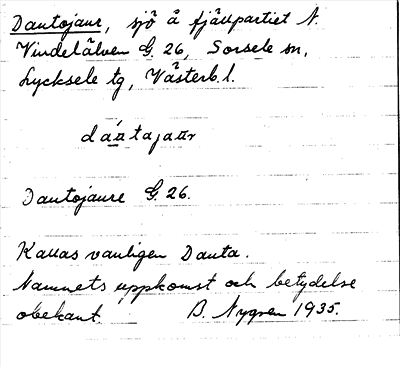 Dautojaur, sjö å fjällpartiet N.
Vindelälven G. 26, Sorsele sn,
Lycksele tg, Västerb. l.
dáɯtajaɯr
Dautojaure G. 26.
Kallas vanligen Dauta.
Namnets uppkomst och betydelse
obekant. B. Nygren 1935.